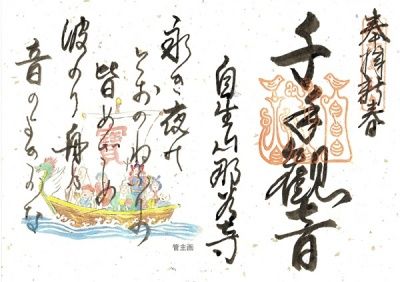 奉拝 新春
千手観音
自生山那谷寺
永き夜の
とおのねふりの
皆めざめ
波のり舟の
音のよきかな
寳
管主画